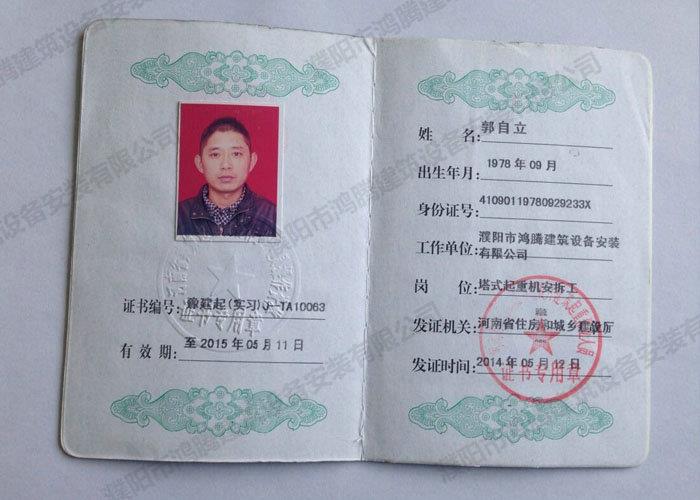 证书编号: 豫建起(实习)J-TA10063
有效期: 至 2015 年 05 月 11 日
姓名: 郭自立
出生年月: 1978 年 09 月
身份证号: 41090119780929233X
工作单位: 濮阳市鸿腾建筑设备安装
有限公司
岗位: 塔式起重机安拆工
发证机关: 河南省住房和城乡建设厅
发证时间: 2014 年 05 月 12 日
证书专用章
濮阳市鸿腾建筑设备安装有限公司